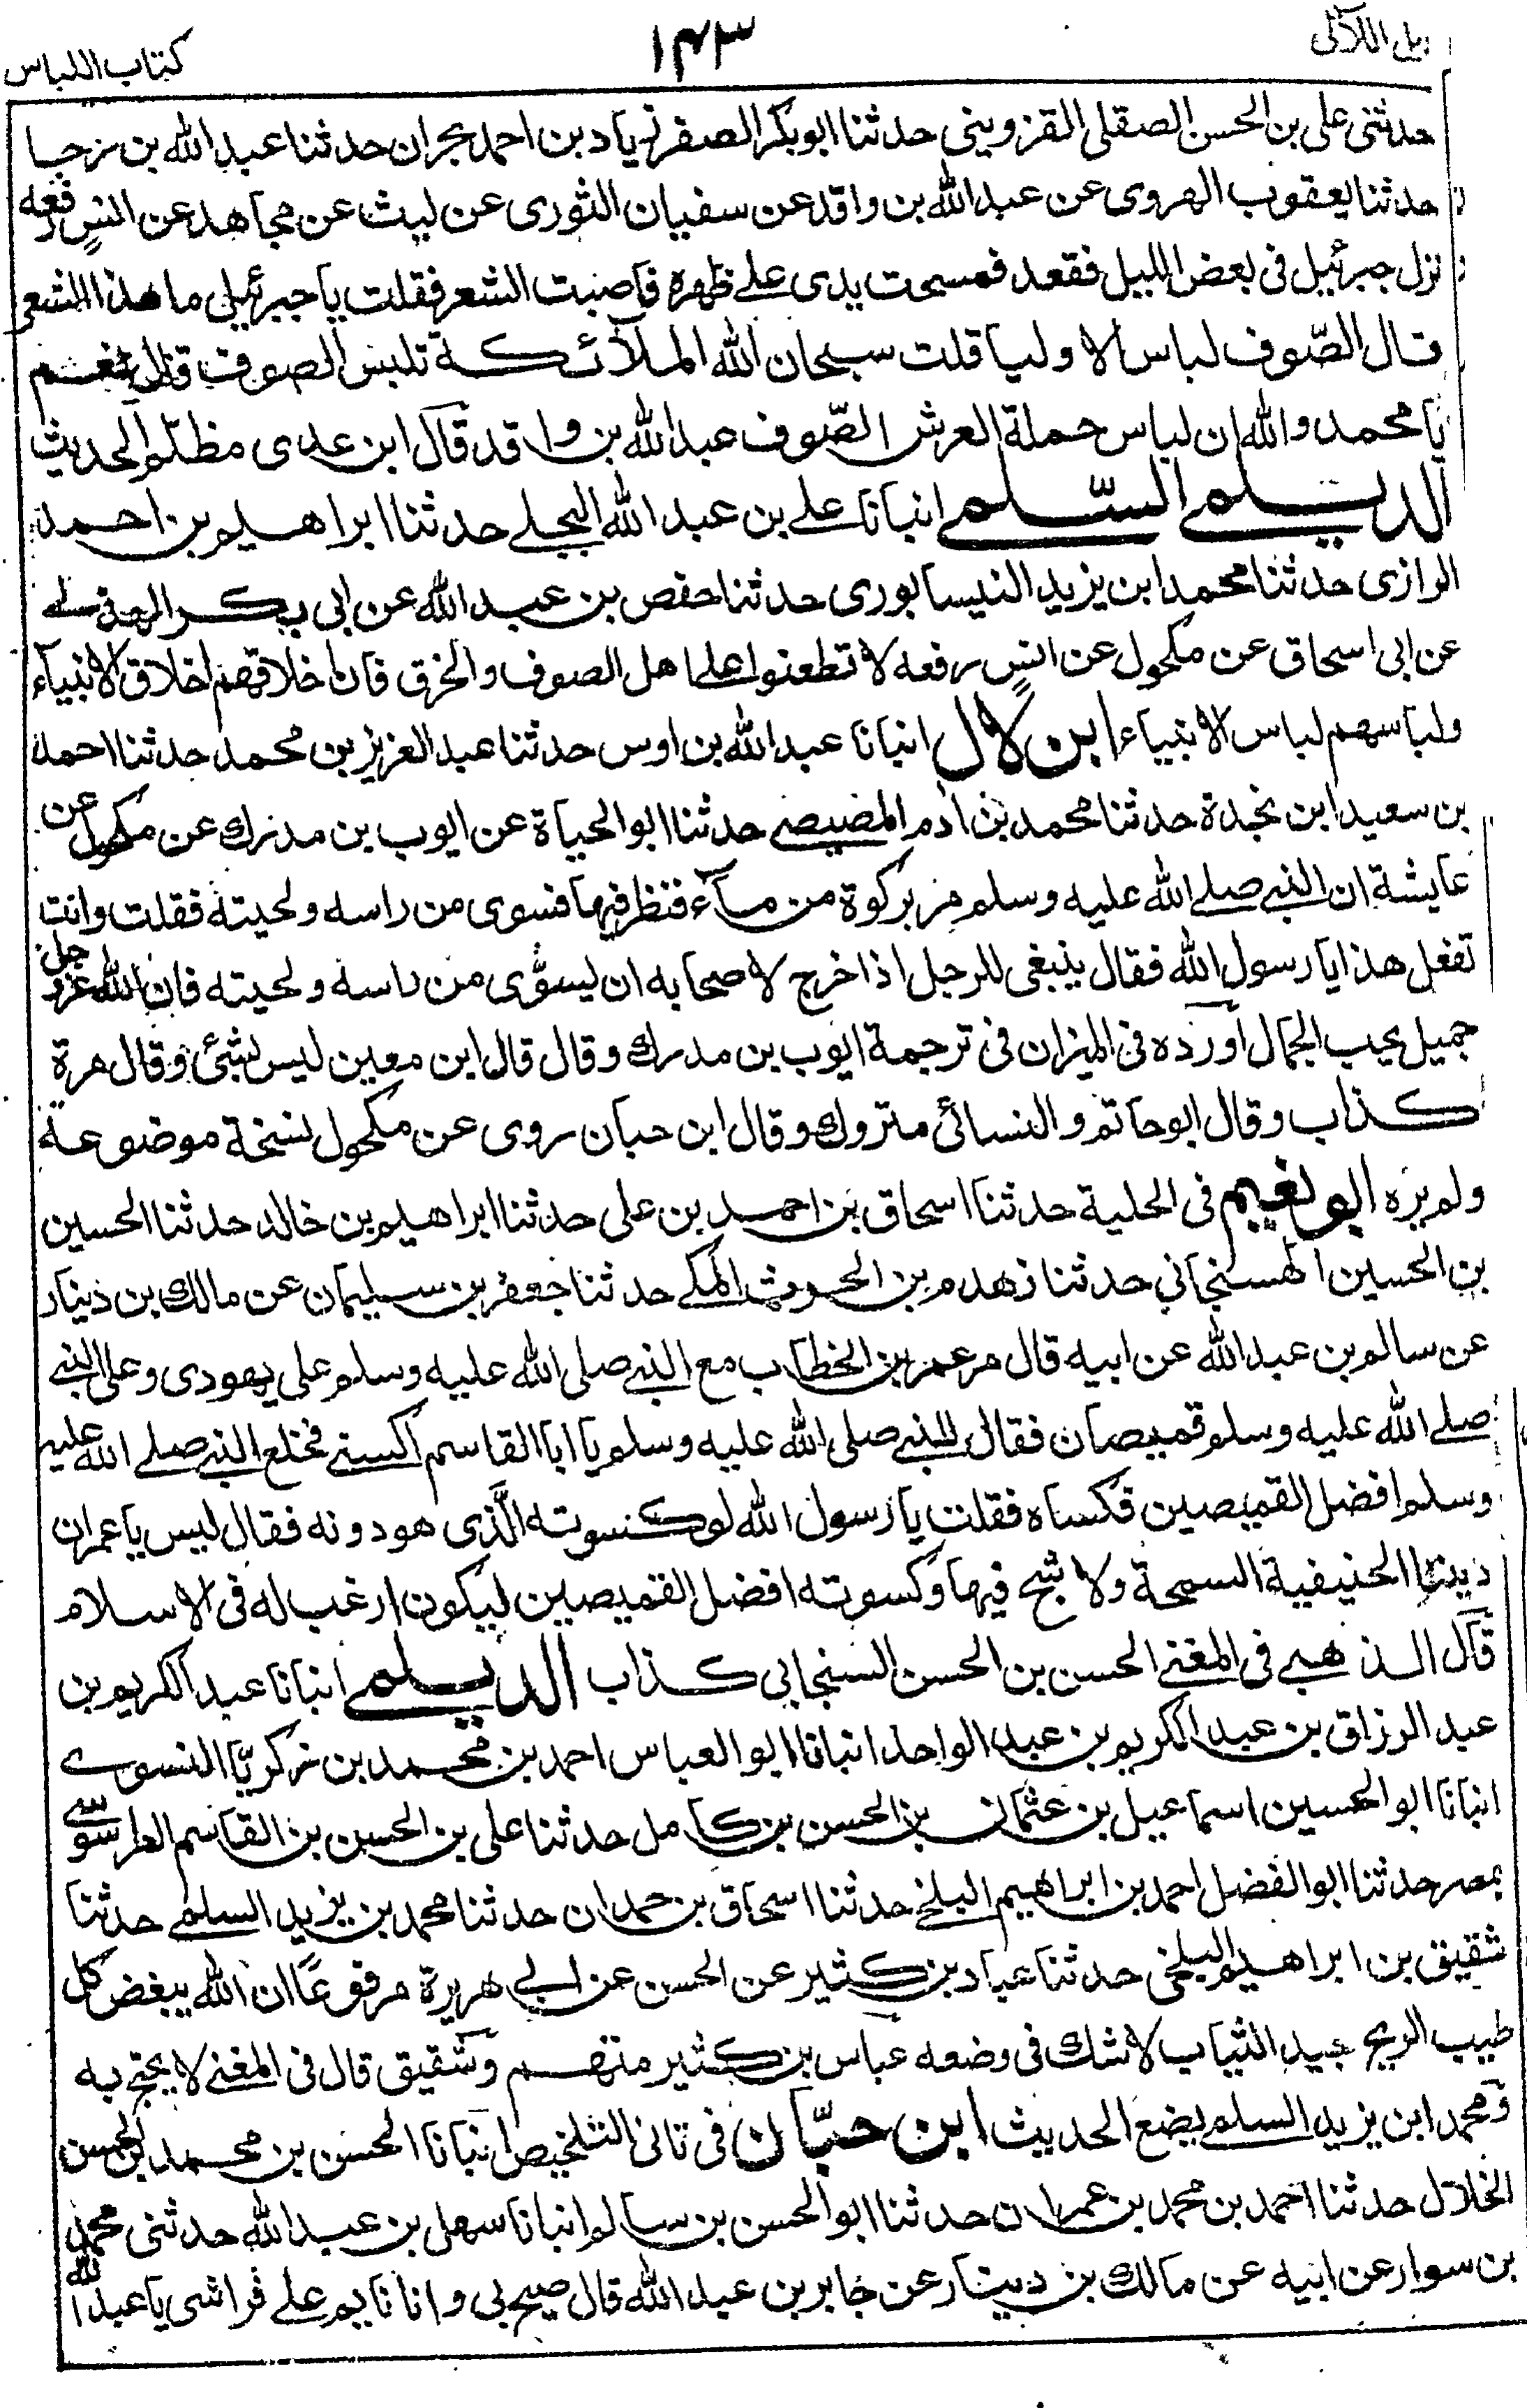 ذيل اللآلى
١٤٣
كتاب اللباس
حدثنى على بن الحسن الصقلى القزوينى حدثنا ابوبكر الصفر زياد بن احمد بجران حدثنا عبد الله بن رجا
حدثنا يعقوب الهروى عن عبد الله بن واقد عن سفيان الثورى عن ليث عن مجاهد عن انس رفعه
نزل جبرئيل فى بعض الليل فقعد فمسحت يدى على ظهره فاصبت الشعر فقلت يا جبرئيل ما هذا الشعر
قال الصّوف لباس الاوليا قلت سبحان الله الملآئكة تلبس الصوف قال نعم
يا محمد والله ان لباس حملة العرش الصّوف عبد الله بن واقد قال ابن عدى مظلم الحديث
الديلمى السّلمى انبانا على بن عبد الله البجلى حدثنا ابراهيم بن احمد
الرازى حدثنا محمد ابن يزيد النيسابورى حدثنا حفص بن عبد الله عن ابى بكر الهذلى
عن ابى اسحاق عن مكحول عن انس رفعه لا تطعنوا على اهل الصوف والخرق فان اخلاقهم اخلاق الانبياء
ولباسهم لباس الانبياء ابن لال انبانا عبد الله بن اوس حدثنا عبد العزيز بن محمد حدثنا احمد
بن سعيد ابن نجدة حدثنا محمد بن ادم المصيصى حدثنا ابو الحياة عن ايوب بن مدرك عن مكحول عن
عايشة ان النبى صلى الله عليه وسلم مر بركوة من مآء فنظر فيها فسوى من راسه ولحيته فقلت وانت
تفعل هذا يا رسول الله فقال ينبغى للرجل اذا خرج لاصحابه ان يسوّى من راسه ولحيته فان الله عز و جل
جميل يحب الجمال اورده فى الميزان فى ترجمة ايوب بن مدرك وقال قال ابن معين ليس بشئ وقال مرة
كذاب وقال ابو حاتم والنسائى متروك وقال ابن حبان روى عن مكحول نسخة موضوعة
ولم يره ابو نعيم فى الحلية حدثنا اسحاق بن احمد بن على حدثنا ابراهيم بن خالد حدثنا الحسين
بن الحسين الهسنجانى حدثنا زهدم بن الحرث المكى حدثنا جعفر بن سليمان عن مالك بن دينار
عن سالم بن عبد الله عن ابيه قال مر عمر بن الخطاب مع النبى صلى الله عليه وسلم على يهودى وعلى النبى
صلى الله عليه وسلم قميصان فقال للنبى صلى الله عليه وسلم يا ابا القاسم اكسنى فخلع النبى صلى الله عليه
وسلم افضل القميصين فكساه فقلت يا رسول الله لو كسوته الّذى هو دونه فقال ليس يا عمر ان
ديننا الحنيفية السمحة ولا شح فيها وكسوته افضل القميصين ليكون ارغب له فى الاسلام
قال الذهبى فى المغنى الحسن بن الحسن السنجابى كذاب الديلمى انبانا عبد الكريم بن
عبد الرزاق بن عبد الكريم بن عبد الواحد انبانا ابو العباس احمد بن محمد بن زكريّا النسوى
انبانا ابو الحسين اسماعيل بن عثمان بن الحسن بن كامل حدثنا على بن الحسن بن القاسم الطرسوسى
بمصر حدثنا ابو الفضل احمد بن ابراهيم البلخى حدثنا اسحاق بن حمدان حدثنا محمد بن يزيد السلمى حدثنا
شقيق بن ابراهيم البلخى حدثنا عباد بن كثير عن الحسن عن ابى هريرة مرفوعًا ان الله يبغض كل
طيب الريح جيد الثياب لا شك فى وضعه عباس بن كثير متهم وشقيق قال فى المغنى لا يحتج به
ومحمد ابن يزيد السلمى يضع الحديث ابن حبّان فى ثانى التلخيص انبانا الحسن بن محمد بن الحسن
الخلال حدثنا احمد بن محمد بن عمران حدثنا ابو الحسن بن سالم انبانا سهل بن عبد الله حدثنى محمد
بن سوار عن ابيه عن مالك بن دينار عن جابر بن عبد الله قال صيح بى وانا نايم على فراشى يا عبد الله